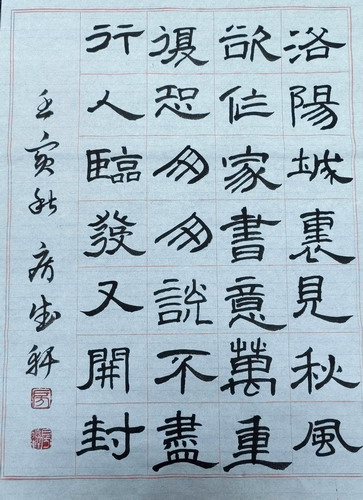 洛陽城裏見秋風
欲作家書意萬重
復恐匆匆説不盡
行人臨發又開封
壬寅秋